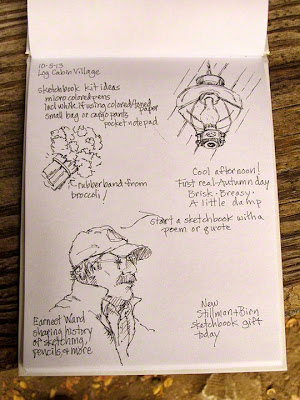 10-5-13
Log Cabin Village
sketchbook kit ideas
micro colored pens
incl white if using colored/toned paper
small bag or cargo pants
pocket notepad
rubberband from
broccoli!
Cool afternoon!
First real Autumn day
Brisk - Breezy -
A little damp
start a sketchbook with a
poem or quote
Earnest Ward
sharing history
of sketching,
pencils, & more
New
Stillman + Birn
sketchbook gift
today